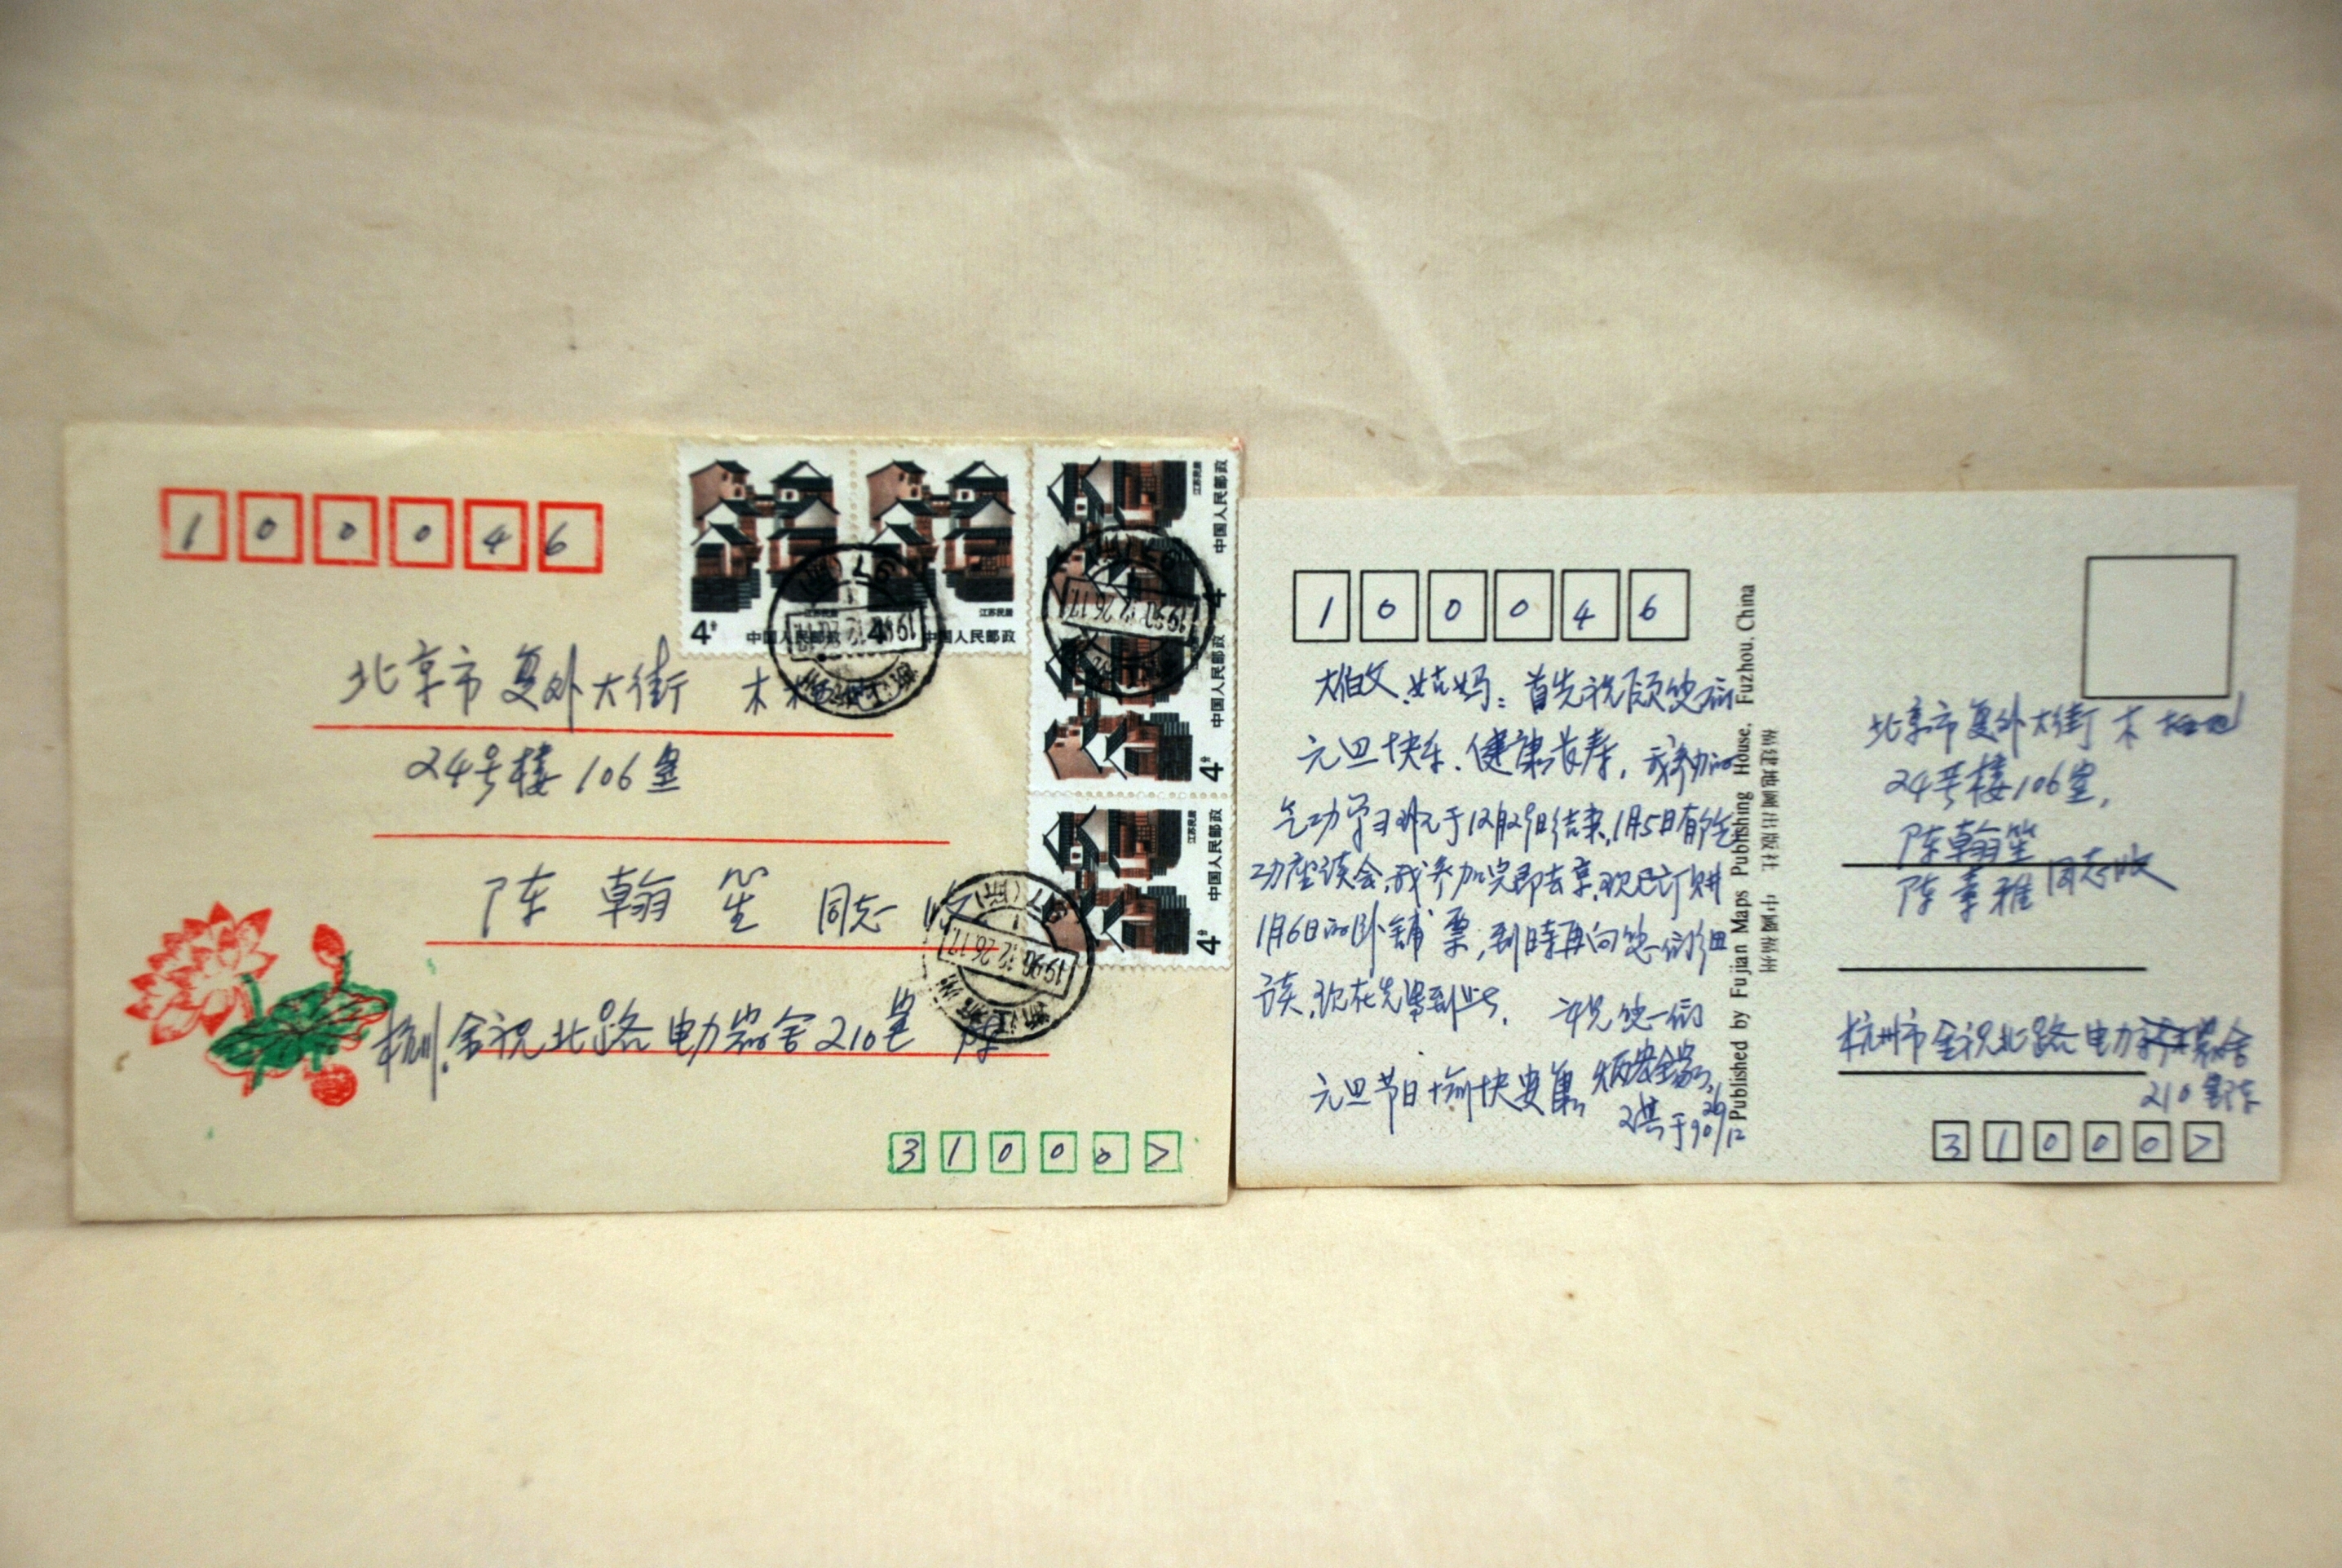 100046
北京市复外大街 木
24号楼106室
陈翰笙 同志收
杭州.金祝北路电力宿舍210室 陈
310007
4分 中国人民邮政 江苏民居
4分 中国人民邮政 江苏民居
4 中国人民邮政 江苏民居
4分 中国人民邮政
4分 中国人民邮政 江苏民居
1990.12.26.17
1990.12.26.17
100046
大伯父、姑妈：首先祝愿您们
元旦快乐、健康长寿，我参加的
气功学习班元于12月29日结束，1月5日有个气
功座谈会，我参加完即去京，现已订购
1月6日的卧铺票，到时再向您们细
谈，现在先写到此， 祝您们
元旦节日愉快安康
于90 26/12
Published by Fujian Maps Publishing House, Fuzhou, China
福建地圖出版社 中國福州
北京市复外大街木
24号楼106室，
陈翰笙
陈 雅 同志收
杭州市金祝北路电力宿舍
210室陈
310007